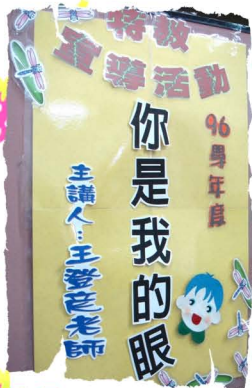 特教
宣導活動
96學年度
你是我的眼
主講人:王登彥老師